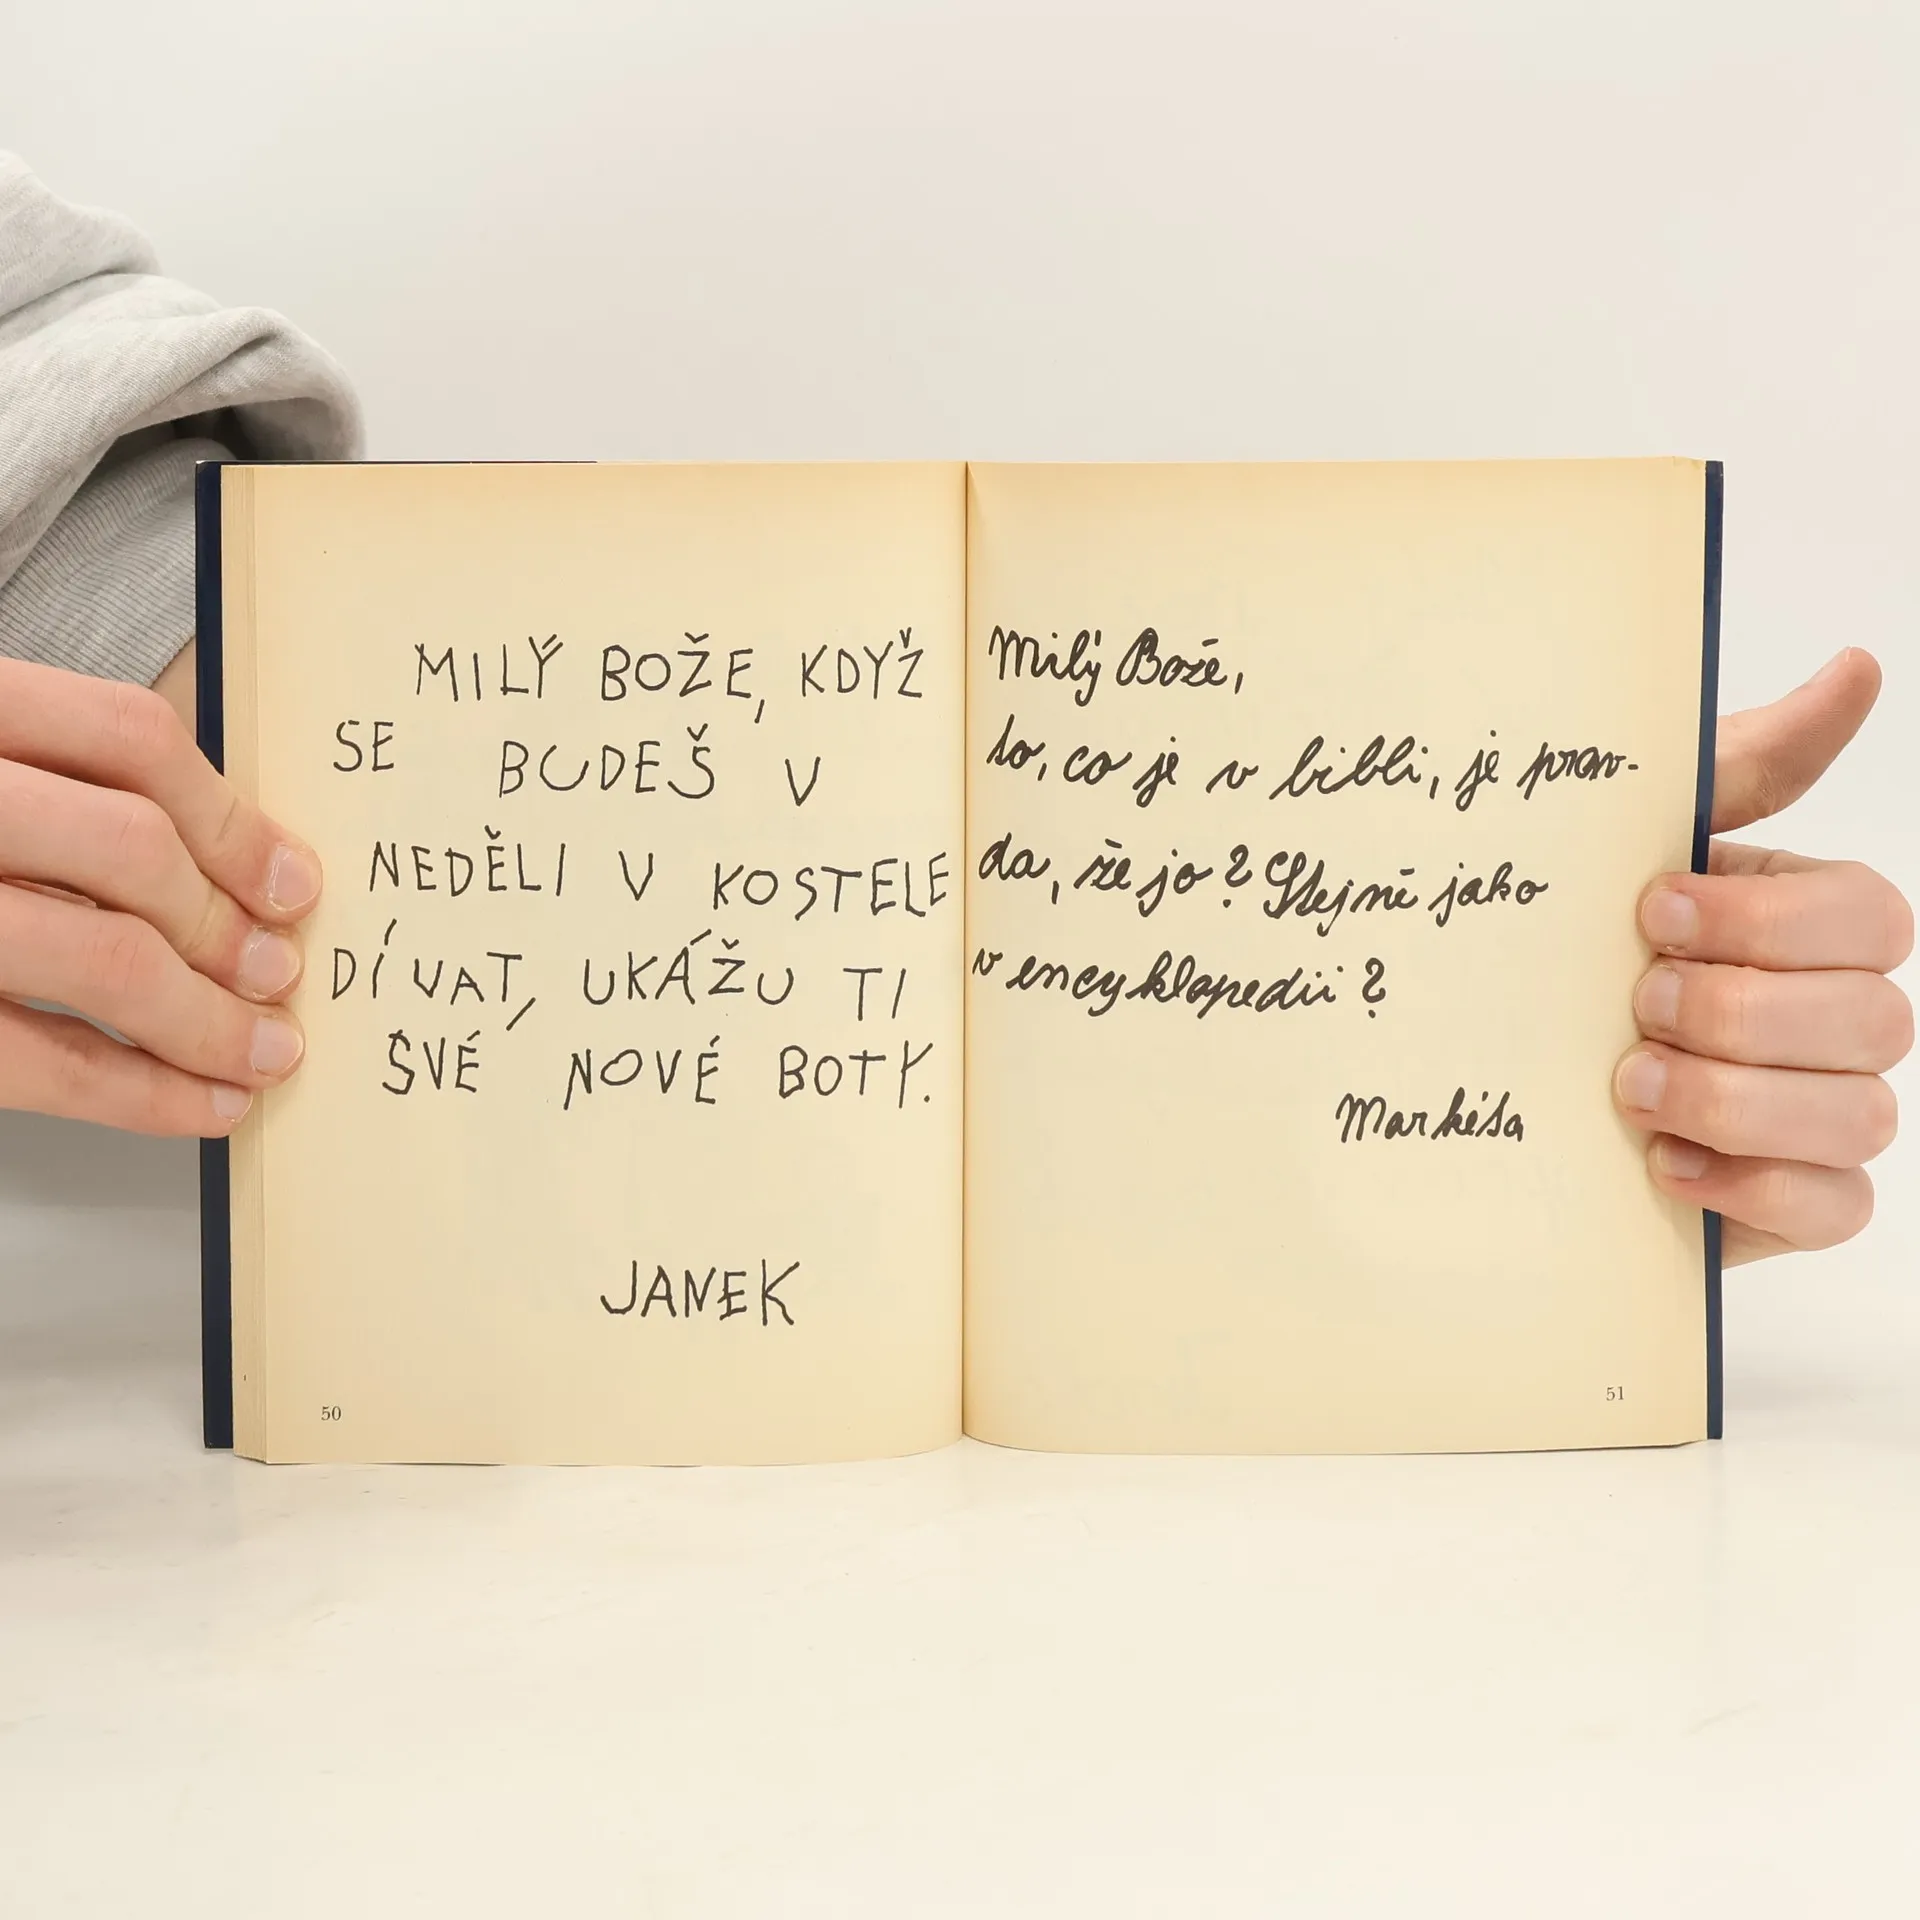 MILÝ BOŽE, KDYŽ
SE BUDEŠ V
NEDĚLI V KOSTELE
DÍVAT, UKÁŽU TI
SVÉ NOVÉ BOTY.
JANEK
50
Milý Bože,
to, co je v bibli, je prav-
da, že jo? Stejně jako
v encyklopedii?
Markéta
51